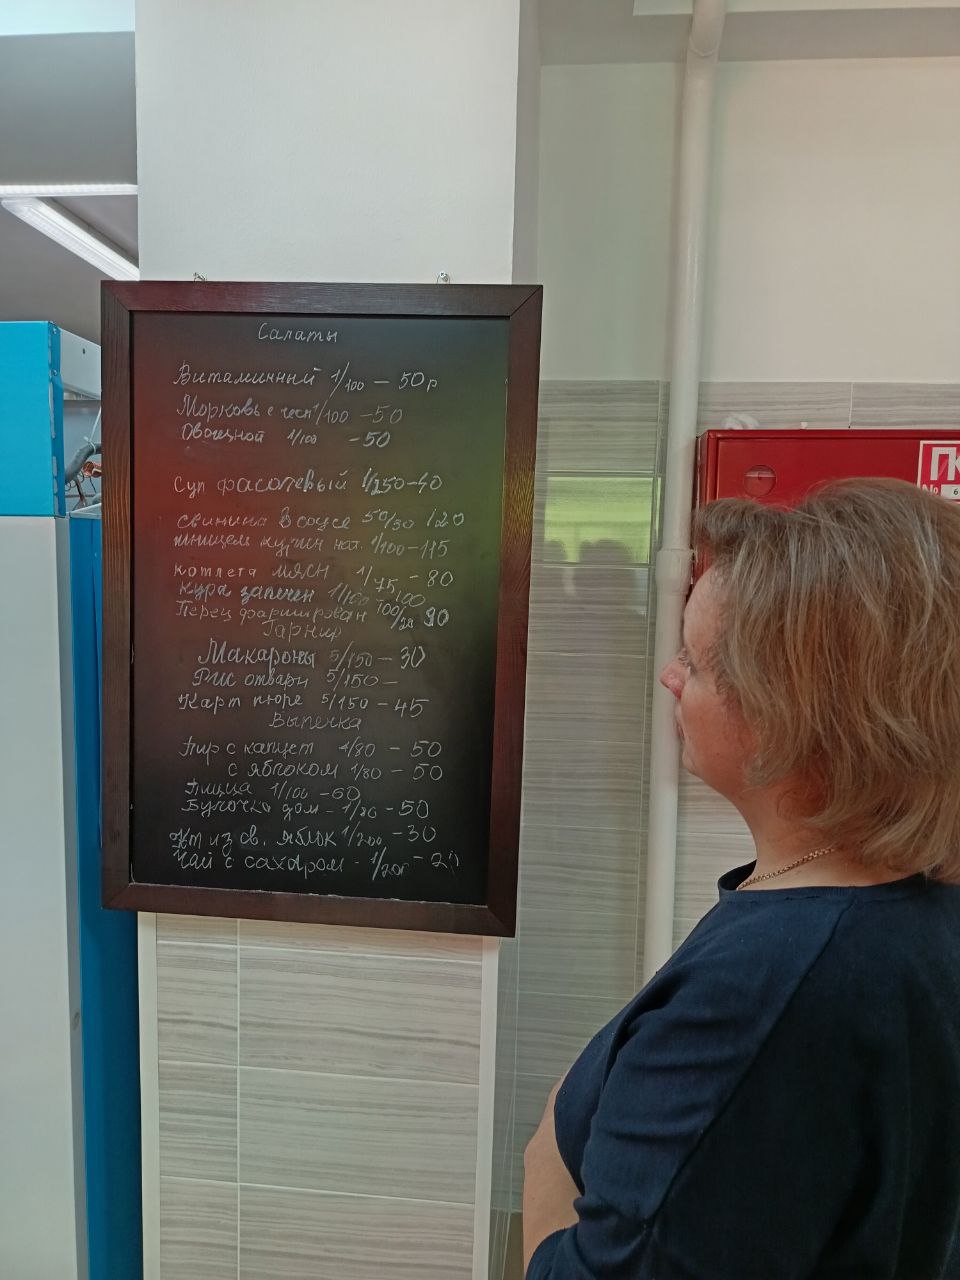 Салаты
Витаминный 1/100 — 50р
Морковь с чесн 1/100 -50
Овощной 1/100 -50
Суп фасолевый 1/250-40
свинина в соусе 50/30 120
шницель кур нат. 1/100-115
котлета мясн 1/75 - 80
кура запечен 1/100 -100
Перец фарширован 100/20 90
Гарнир
Макароны 5/150 - 30
Рис отварн 5/150 -
Карт пюре 5/150 - 45
Выпечка
Пир с капуст 1/80 - 50
с яблоком 1/80 - 50
Пицца 1/100 -60
Булочка дом - 1/80 - 50
Кт из св. яблок 1/200 - 30
Чай с сахаром - 1/200 - 20
ПК
№ 6